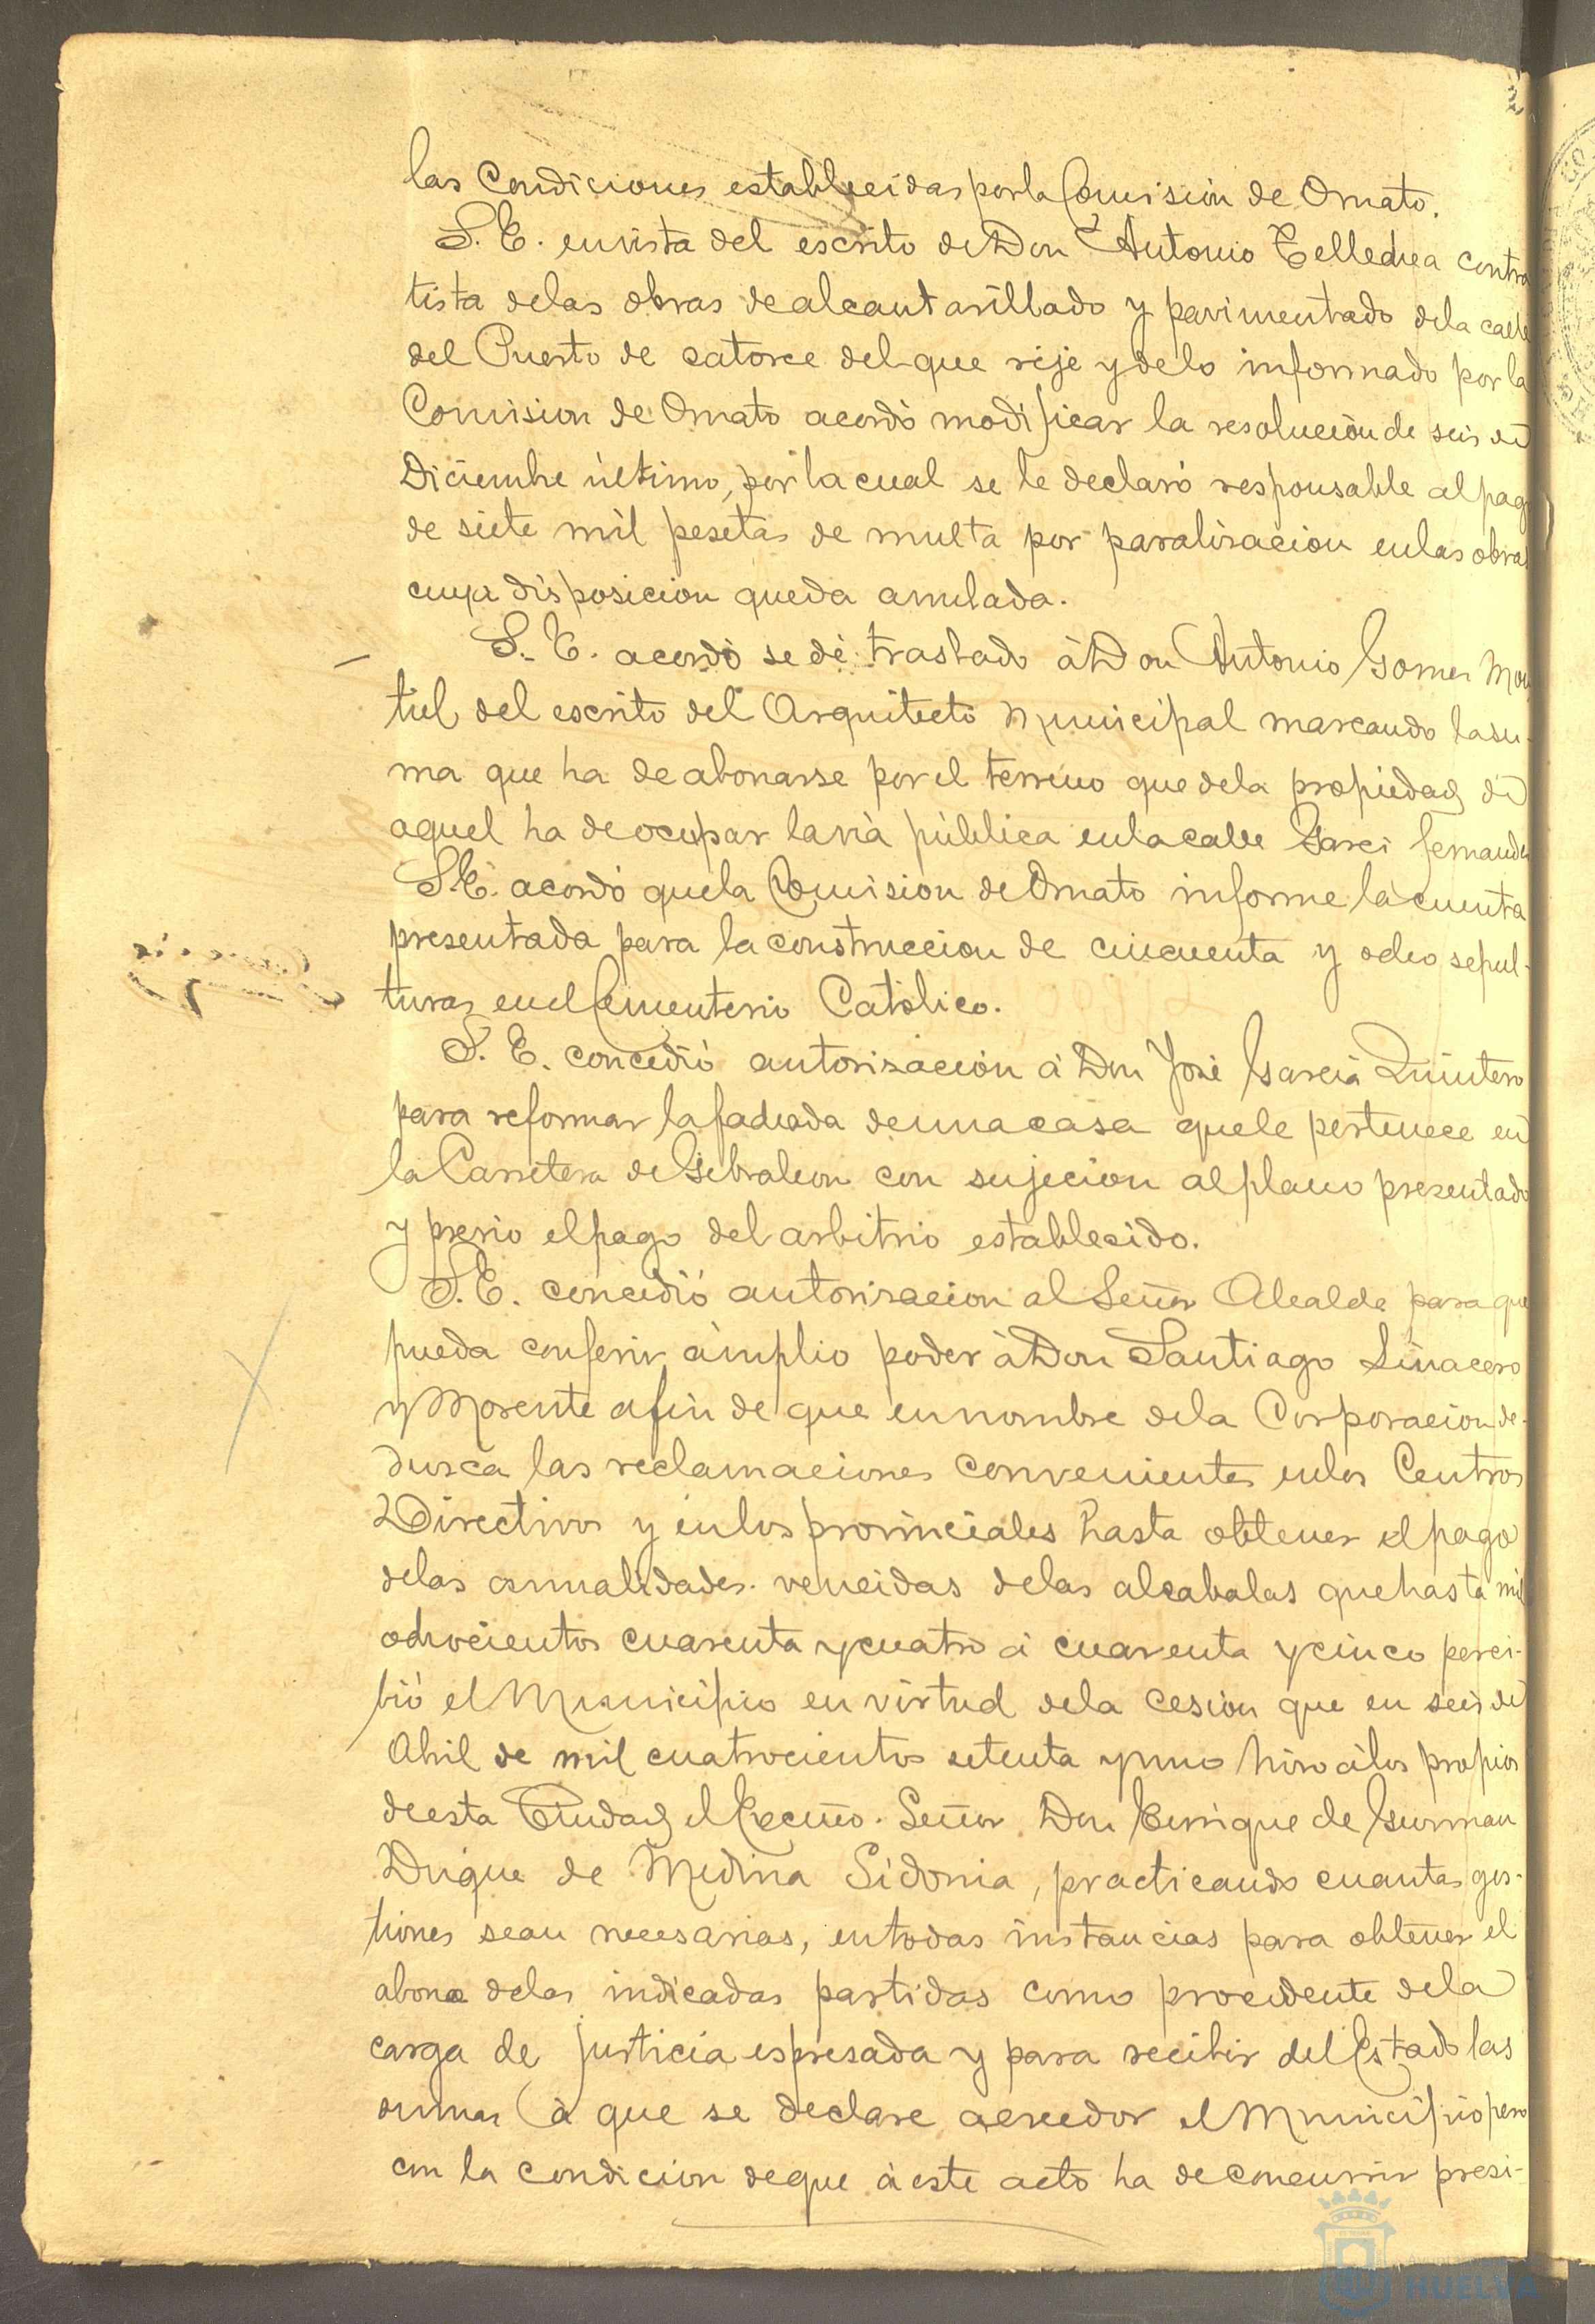 las Condiciones establecidas por la Comision de Ornato.
S. E. en vista del escrito de Don Antonio Tellechea contra
tista de las obras de alcantarillado y pavimentado de la calle
del Puerto de catorce del que rije y de lo informado por la
Comision de Ornato acordó modificar la resolución de seis de
Diciembre último, por la cual se le declaró responsable al pago
de siete mil pesetas de multa por paralizacion en las obras
cuya disposicion queda anulada.
S. E. acordó se dé traslado á Don Antonio Gomez Mon
tiel del escrito del Arquitecto Municipal marcando la su-
ma que ha de abonarse por el terreno que de la propiedad de
aquel ha de ocupar la via pública en la calle Garci Fernandez
S. E. acordó que la Comision de Ornato informe la cuenta
presentada para la construccion de cincuenta y ocho sepul-
turas en el Cementerio Católico.
S. E. concedió autorizacion á Don José Garcia Quintero
para reformar la fachada de una casa que le pertenece en
la Carretera de Gibraleon con sujecion al plano presentado
y previo el pago del arbitrio establecido.
S. E. concedió autorizacion al Señor Alcalde para que
pueda conferir ámplio poder á Don Santiago Linacero
y Morente a fin de que en nombre de la Corporacion de-
duzca las reclamaciones convenientes en los Centros
Directivos y en los provinciales hasta obtener el pago
de las anualidades vencidas de las alcabalas que hasta mil
ochocientos cuarenta y cuatro á cuarenta y cinco perci-
bió el Municipio en virtud de la cesion que en seis de
Abril de mil cuatrocientos setenta y uno hizo á los propios
de esta Ciudad el Excmo. Señor Don Enrique de Guzman
Duque de Medina Sidonia, practicando cuantas ges-
tiones sean necesarias, en todas instancias para obtener el
abono de las indicadas partidas como procedente de la
carga de justicia espresada y para recibir del Estado las
sumas á que se declare acreedor el Municipio pero
con la condicion de que á este acto ha de concurrir presi-
HUELVA